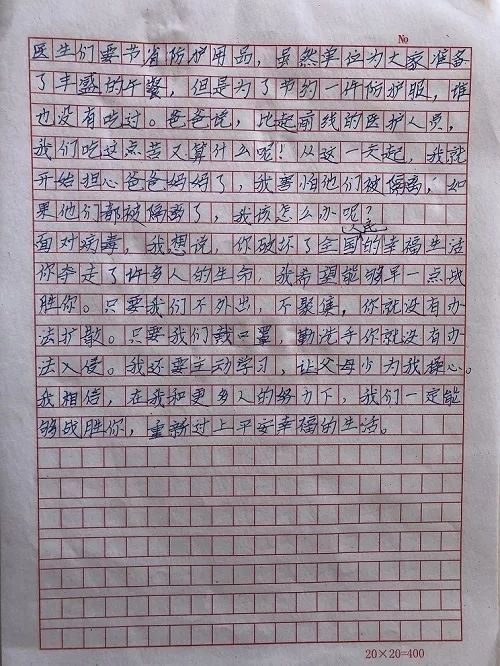 No
医生们要节省防护用品，虽然单位为大家准备
了丰盛的午餐，但是为了节约一件防护服，谁
也没有吃过。爸爸说，比起前线的医护人员，
我们吃这点苦又算什么呢！从这一天起，我就
开始担心爸爸妈妈了，我害怕他们被隔离，如
果他们都被隔离了，我该怎么办呢？
面对病毒，我想说，你破坏了全国人民的幸福生活
你夺走了许多人的生命，我希望能够早一点战
胜你。只要我们不外出，不聚集，你就没有办
法扩散。只要我们戴口罩，勤洗手你就没有办
法入侵。我还要主动学习，让父母少为我操心。
我相信，在我和更多人的努力下，我们一定能
够战胜你，重新过上平安幸福的生活。
20×20=400